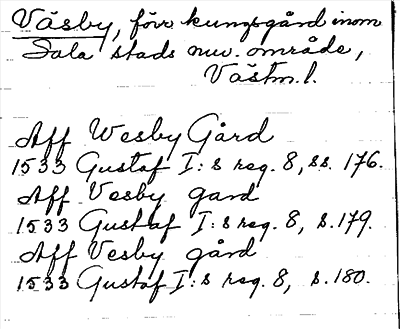 Väsby, förr kungsgård inom
Sala stads nuv. område,
Västm. l.
Aff Wesby Gård
1533 Gustaf I:s reg. 8, ss. 176.
Aff Vesby gard
1533 Gustaf I:s reg. 8, s. 179.
Aff Vesby gård
1533 Gustaf I:s reg. 8, s. 180.